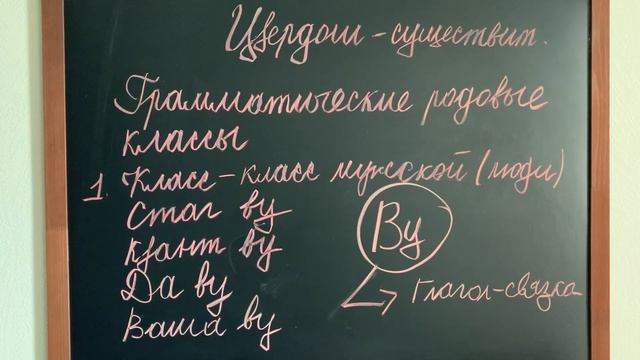 Цвердош - существит.
Грамматические родовые
классы
1. Класс - класс мужской (люди)
Стаг ву
Кjант ву
Да ву
Ваша ву
Ву
Глагол-связка